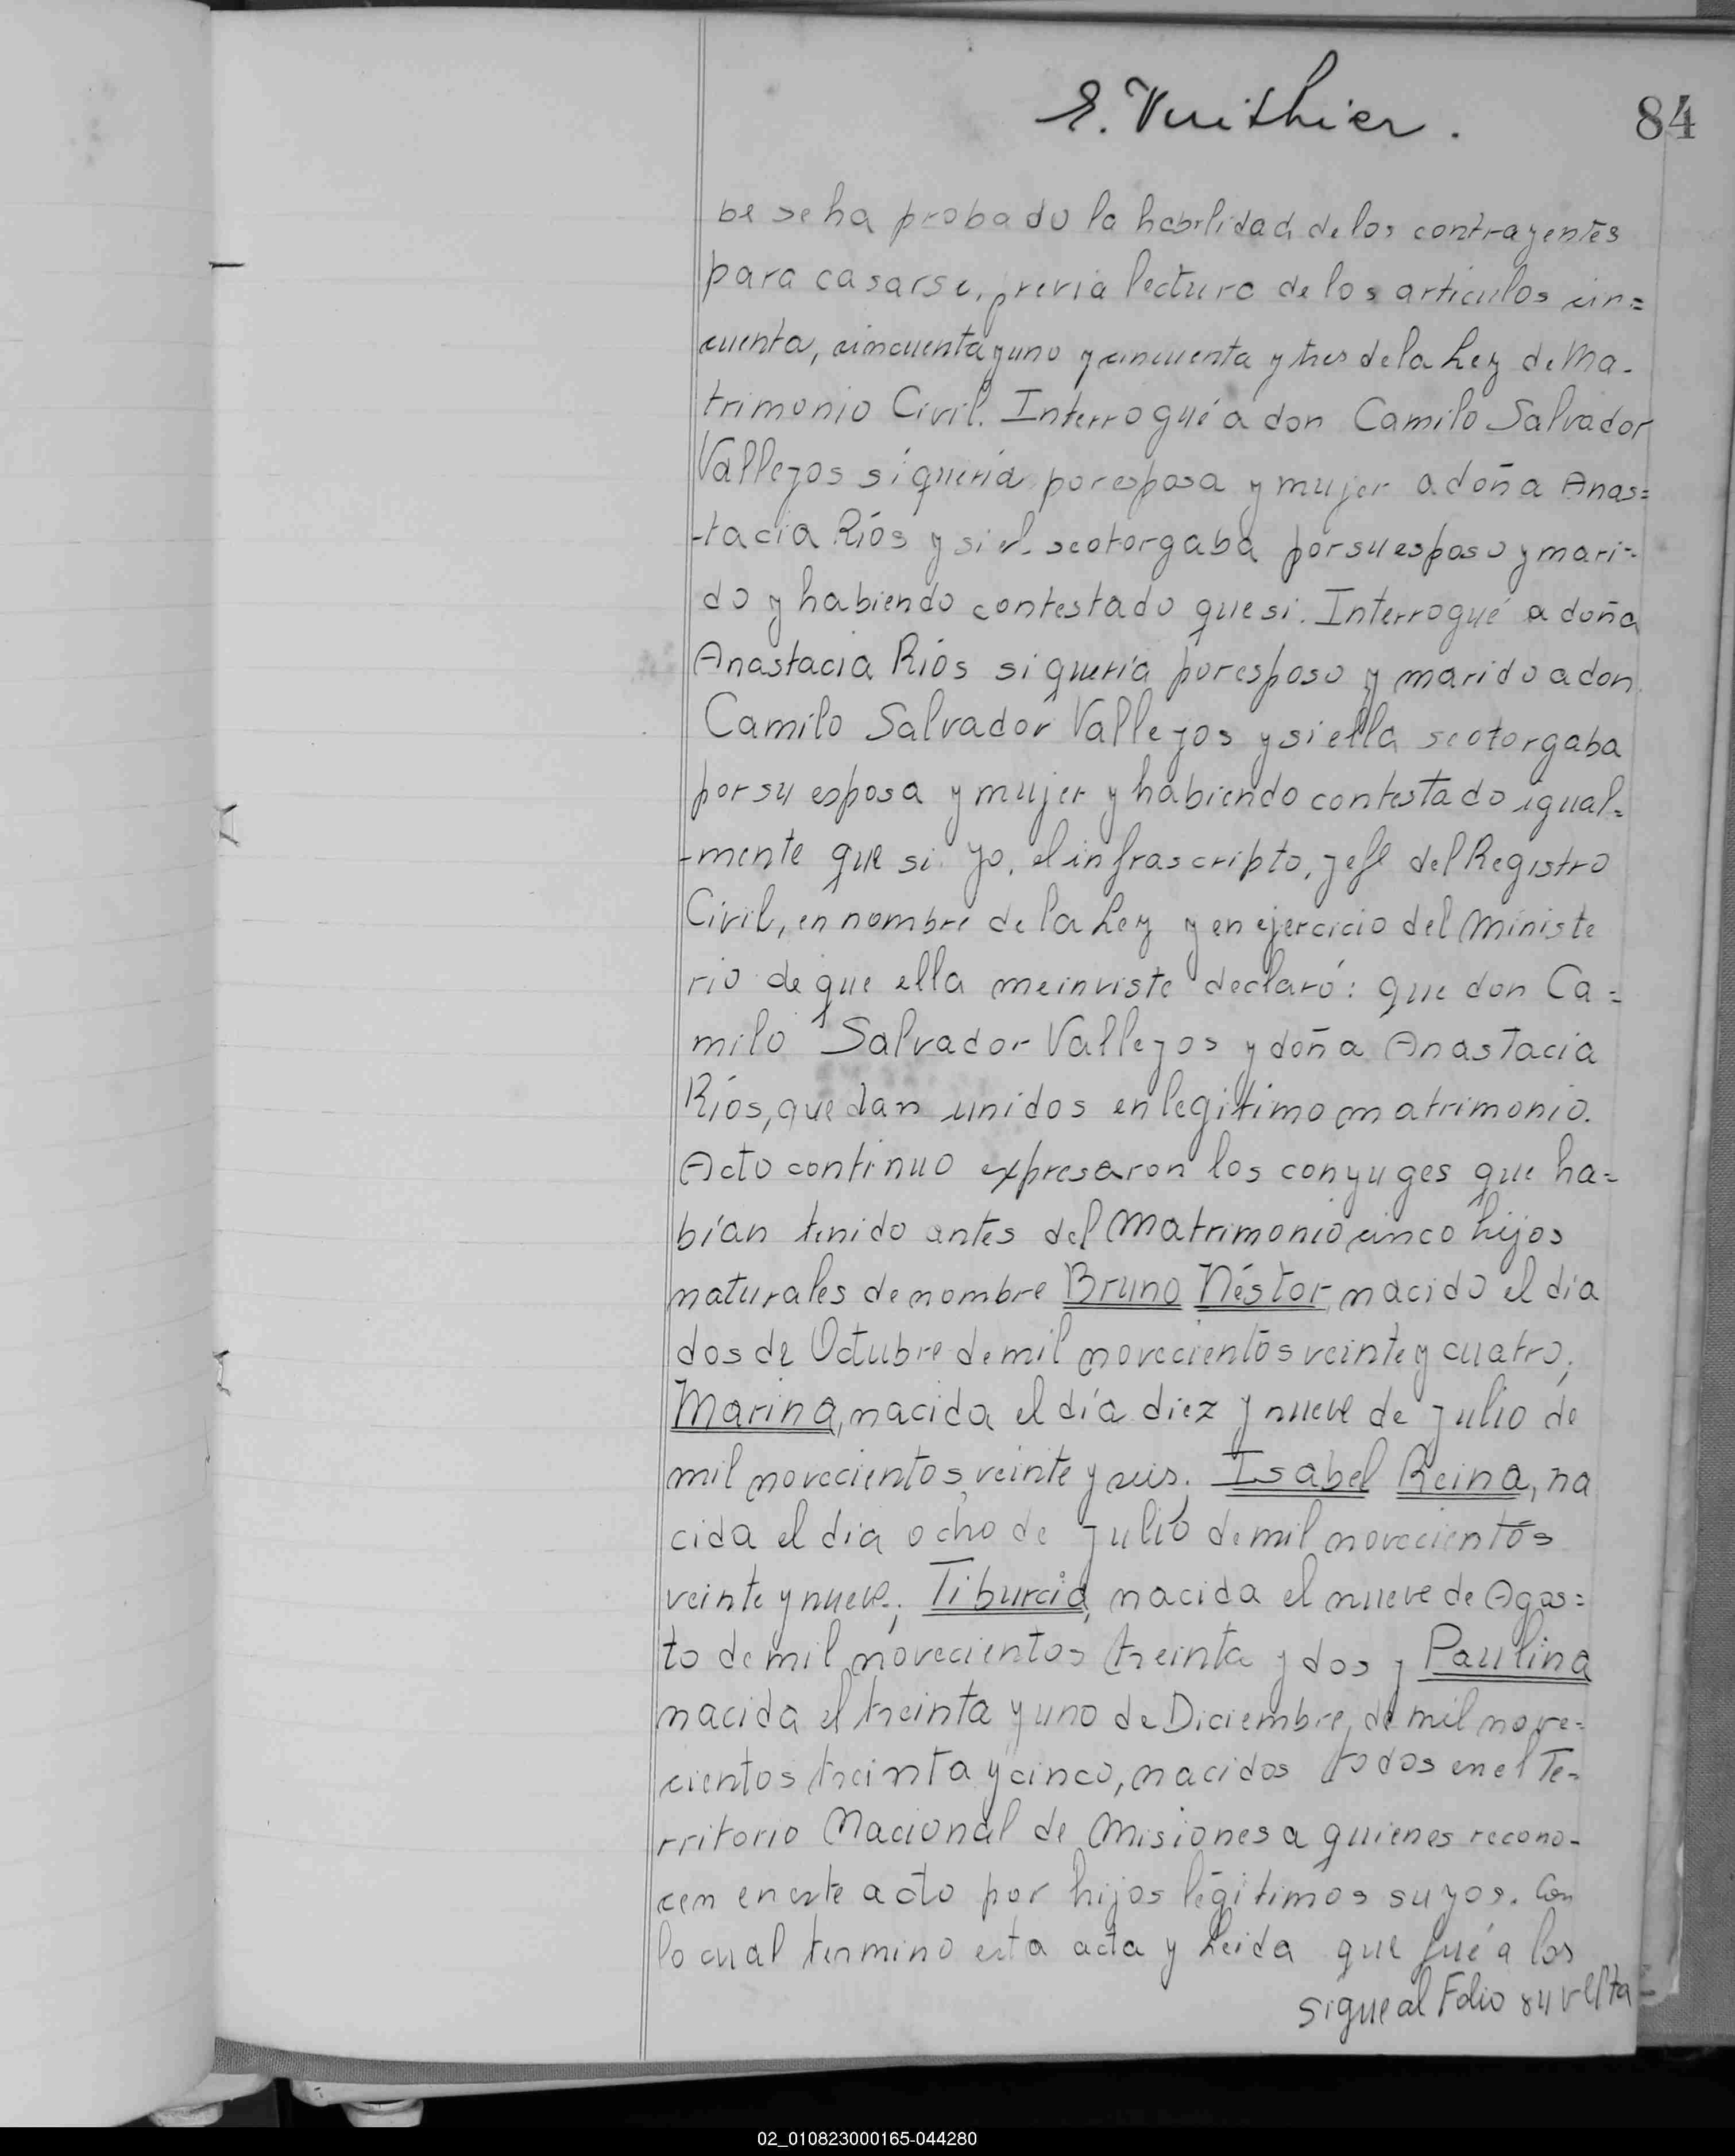 E. Vuithier.
84
be se ha probado la habilidad de los contrayentes
para casarse, previa lectura de los articulos cin=
cuenta, cincuenta y uno y cincuenta y tres de la Ley de Ma-
trimonio Civil. Interrogué a don Camilo Salvador
Vallejos si quería por esposa y mujer a doña Anas=
-tacia Ríos y si el se otorgaba por su esposo y mari-
do y habiendo contestado que si. Interrogué a doña
Anastacia Ríos si quería por esposo y marido a don
Camilo Salvador Vallejos y si ella se otorgaba
por su esposa y mujer y habiendo contestado igual=
-mente que si. Yo, el infrascripto, jefe del Registro
Civil, en nombre de la Ley y en ejercicio del Ministe
rio de que ella me inviste declaró: que don Ca=
milo Salvador Vallejos y doña Anastacia
Ríos, quedan unidos en legitimo matrimonio.
Acto continuo expresaron los conyuges que ha=
bían tenido antes del Matrimonio cinco hijos
naturales de nombre Bruno Néstor, nacido el día
dos de Octubre de mil novecientos veinte y cuatro;
Marina, nacida el día diez y nueve de julio de
mil novecientos veinte y seis; Isabel Reina, na
cida el dia ocho de julio de mil novecientos
veinte y nueve; Tiburcia, nacida el nueve de Agos=
to de mil novecientos treinta y dos y Paulina
nacida el treinta y uno de Diciembre, de mil nove=
cientos treinta y cinco, nacidos todos en el Te-
rritorio Nacional de Misiones a quienes recono-
cen en este acto por hijos legitimos suyos. Con
lo cual termino esta acta y Leida que fué a los
sigue al Folio 84 vlta
02_010823000165-044280